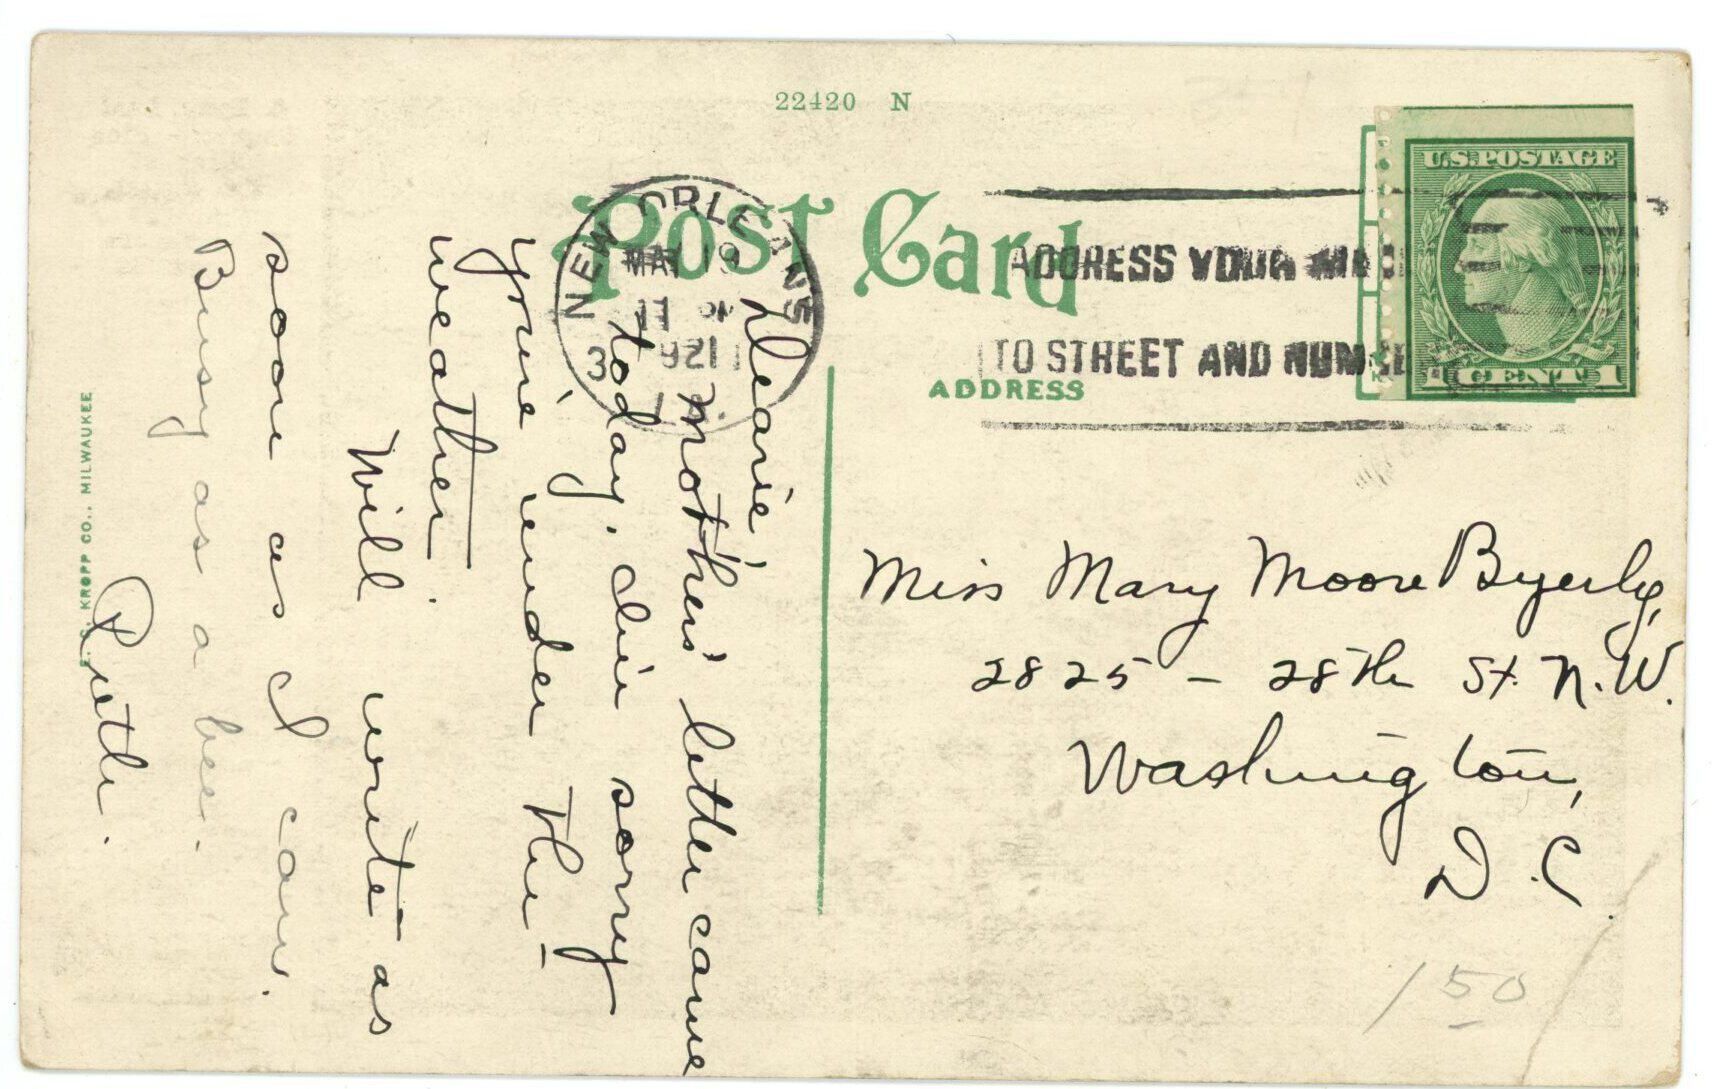 22420 N
Post Card
NEW ORLEANS
19
11
3
LA.
ADDRESS YOUR
TO STREET AND
U.S.POSTAGE
1 CENT 1
ADDRESS
Miss Mary Moore Byerly,
2825 - 28th St. N.W.
Washington,
D.C.
150
Dearie,
Mother's letter came
today, am sorry
you're under the
weather.
Will write as
soon as I can.
Busy as a bee.
Ruth.
KROPP CO., MILWAUKEE